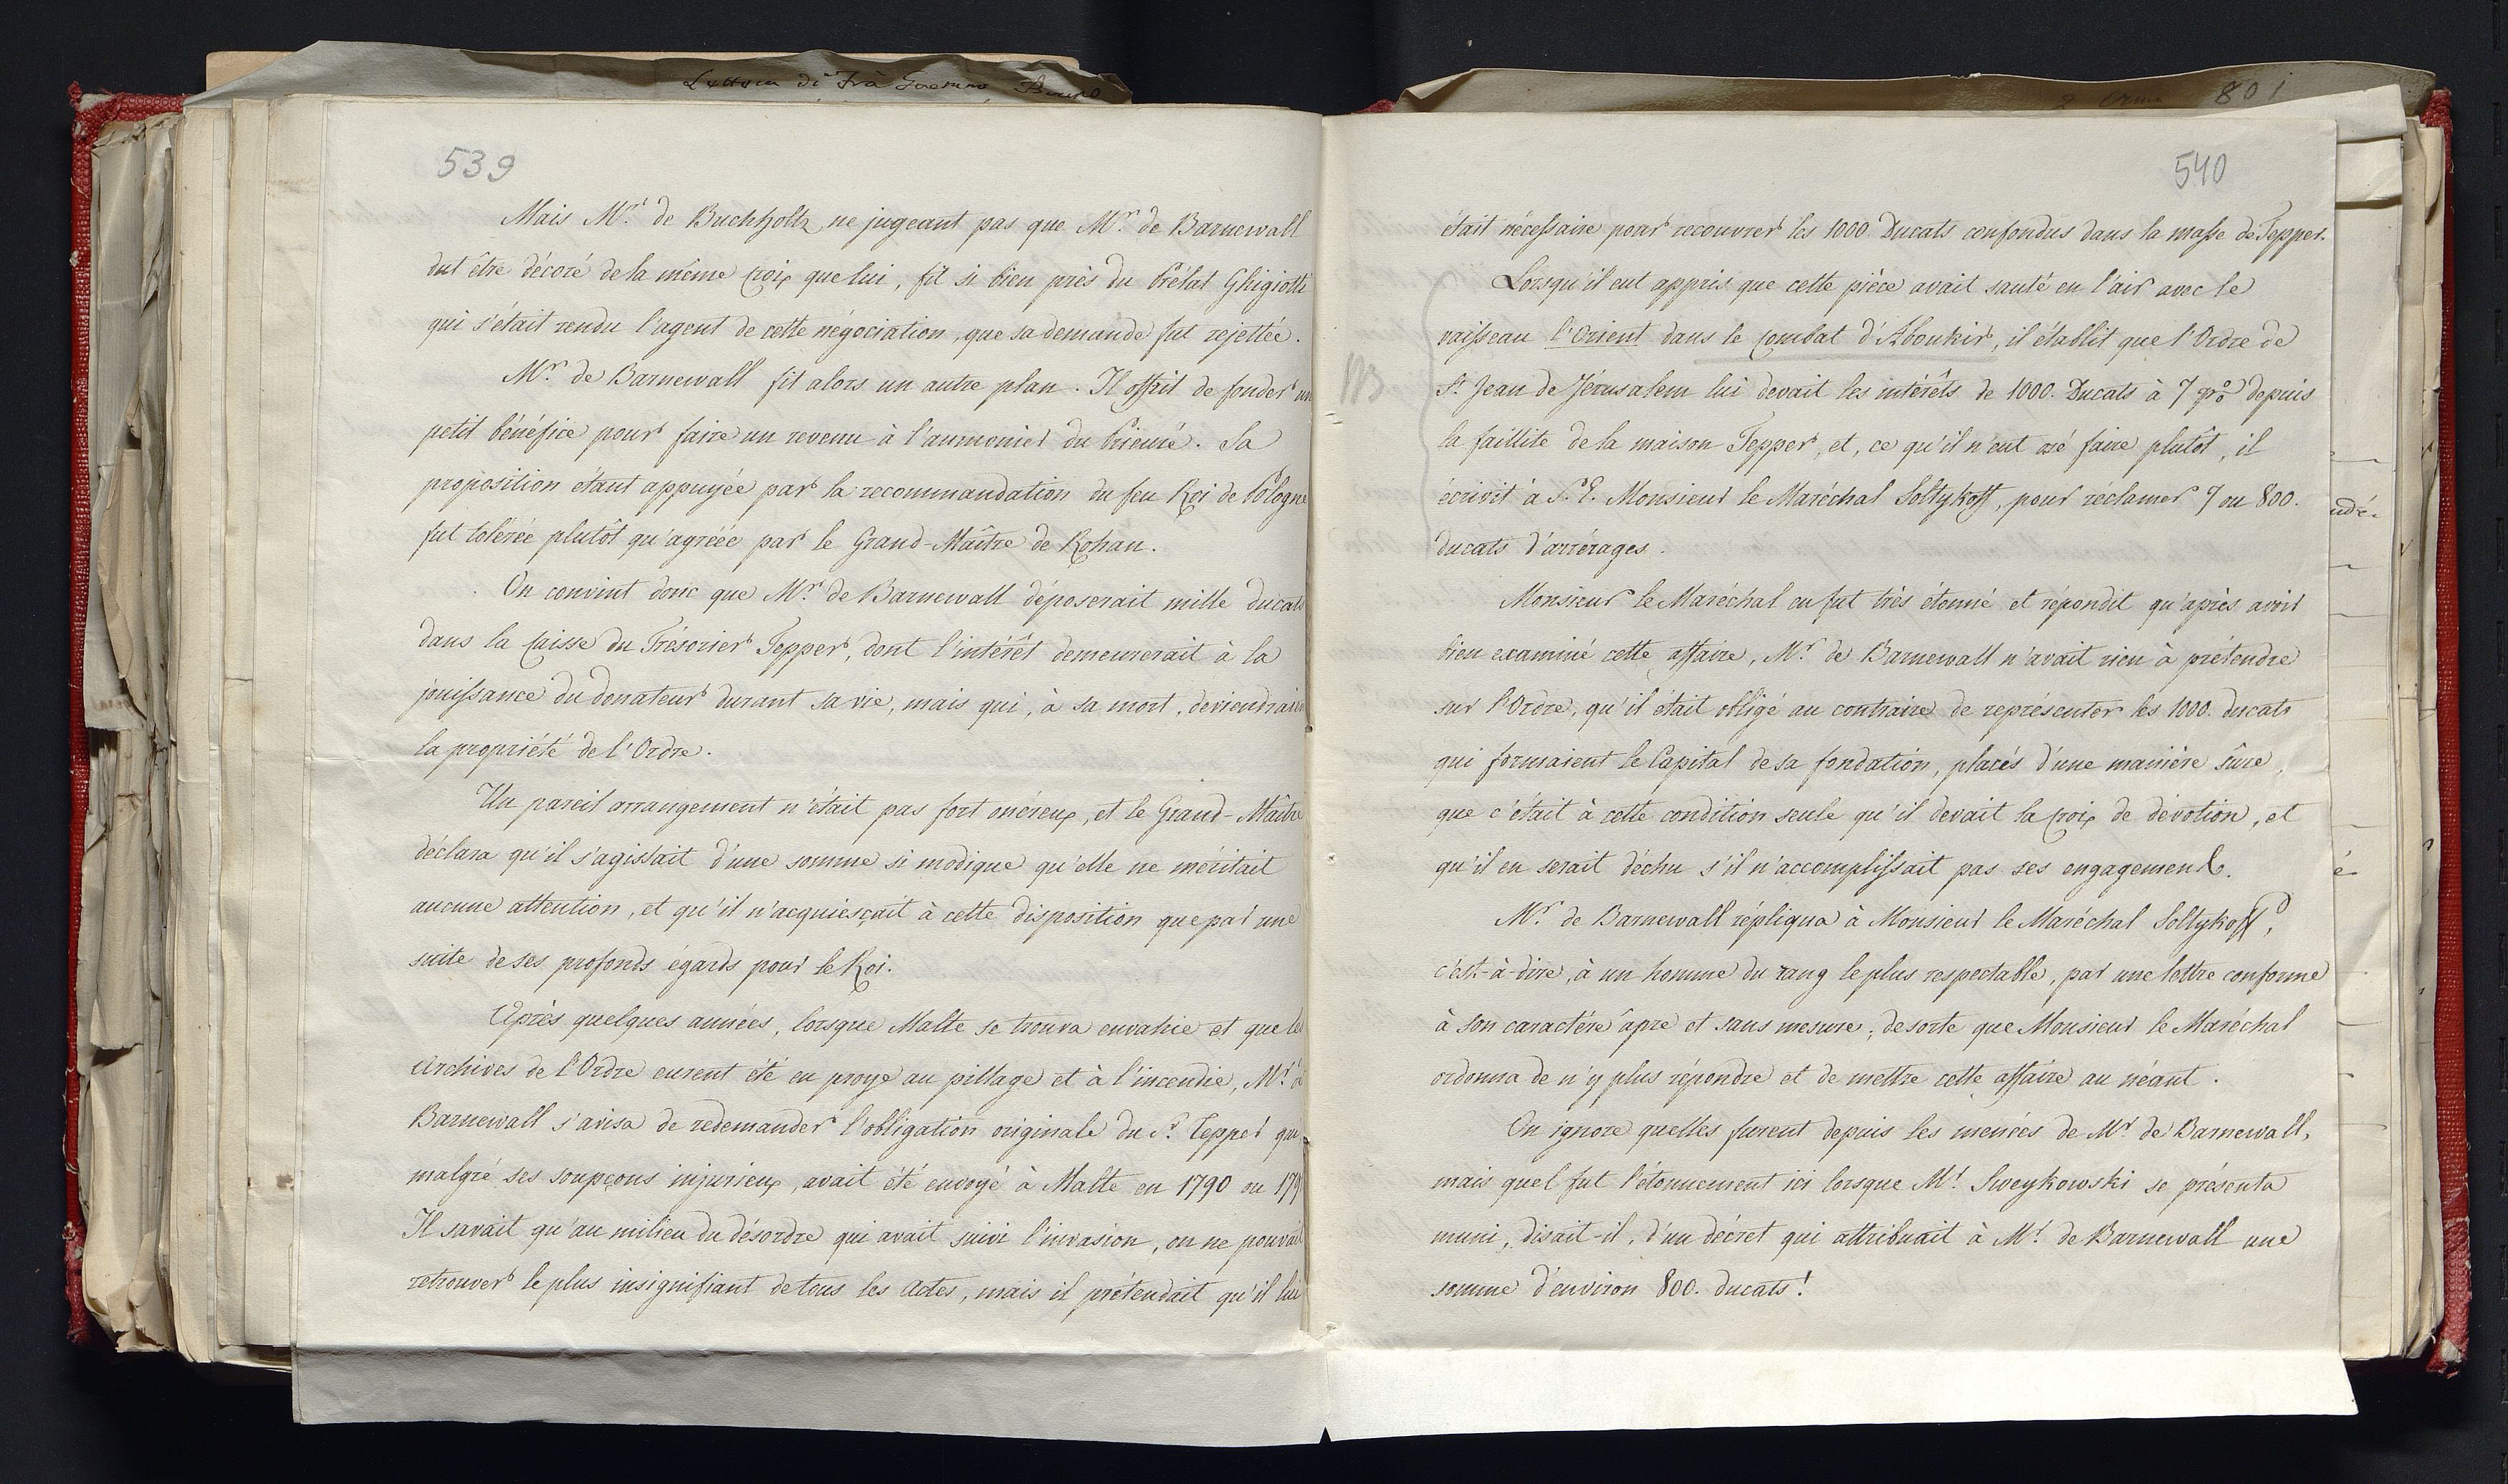 539
Mais Mr. de Buchholtz ne jugeant pas que Mr. de Barnewall
dut être décoré de la même croix que lui, fit si bien près du Prélat Ghigiotti
qui s'était rendu l'agent de cette négociation, que sa demande fut rejettée.
Mr. de Barnewall fit alors un autre plan. Il offrit de fonder un
petit bénéfice pour faire un revenu à l'aumonier du Prieuré. Sa
proposition étant appuyée par la recommandation du feu Roi de Pologne
fut tolérée plutôt qu'agréée par le Grand-Maître de Rohan.
On convint donc que Mr. de Barnewall déposerait mille ducats
dans la Caisse du Trésorier Tepper, dont l'intérêt demeurerait à la
jouissance du donateur durant sa vie, mais qui, à sa mort, deviendrait
la propriété de l'Ordre.
Un pareil arrangement n'était pas fort onéreux, et le Grand-Maître
déclara qu'il s'agissait d'une somme si modique qu'elle ne méritait
aucune attention, et qu'il n'acquiesçait à cette disposition que par une
suite de ses profonds égards pour le Roi.
Après quelques années, lorsque Malte se trouva envahie et que les
Archives de l'Ordre eurent été en proye au pillage et à l'incendie, Mr. de
Barnewall s'avisa de redemander l'obligation originale du Sr. Tepper qui
malgré ses soupçons injurieux, avait été envoyé à Malte en 1790 ou 179
Il savait qu'au milieu du désordre qui avait suivi l'invasion, on ne pouvait
retrouver le plus insignifiant de tous les Actes, mais il prétendait qu'il lui
801
540
était nécessaire pour recouvrer les 1000 Ducats confondus dans la masse de Tepper.
Lorsqu'il eut appris que cette pièce avait sauté en l'air avec le
vaisseau l'Orient dans le combat d'Aboukir, il établit que l'Ordre de
NB
St. Jean de Jérusalem lui devait les intérêts de 1000. Ducats à 7 pr% depuis
la faillite de la maison Tepper, et, ce qu'il n'eut osé faire plutôt, il
écrivit à S. E. Monsieur le Maréchal Soltykoff, pour réclamer 7 ou 800.
ducats d'arrérages.
Monsieur le Maréchal en fut très étonné et répondit qu'après avoir
bien examiné cette affaire, Mr. de Barnewall n'avait rien à prétendre
sur l'Ordre, qu'il était obligé au contraire de représenter les 1000. ducats
qui formaient le Capital de sa fondation, placés d'une manière sûre,
que c'était à cette condition seule qu'il devait la croix de dévotion, et
qu'il en serait déchu s'il n'accomplissait pas ses engagements.
Mr. de Barnewall répliqua à Monsieur le Maréchal Soltykoff,
c'est-à-dire, à un homme du rang le plus respectable, par une lettre conforme
à son caractère âpre et sans mesure; desorte que Monsieur le Maréchal
ordonna de n'y plus répondre et de mettre cette affaire au néant.
On ignore quelles furent depuis les menées de Mr. de Barnewall,
mais quel fut l'étonnement ici lorsque Mr. Sweykowski se présenta
muni, disait-il, d'un décret qui attribuait à Mr. de Barnewall une
somme d'environ 800. ducats!